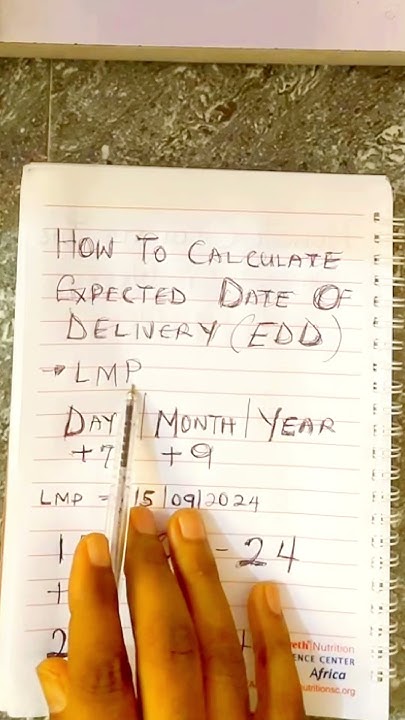 HOW TO CALCULATE
EXPECTED DATE OF
DELIVERY (EDD)
→ LMP
DAY | MONTH | YEAR
+7 +9
LMP = 15|09|2024
1 - 24
+
2
Nutrition
ENCE CENTER
Africa
nutritionsc.org